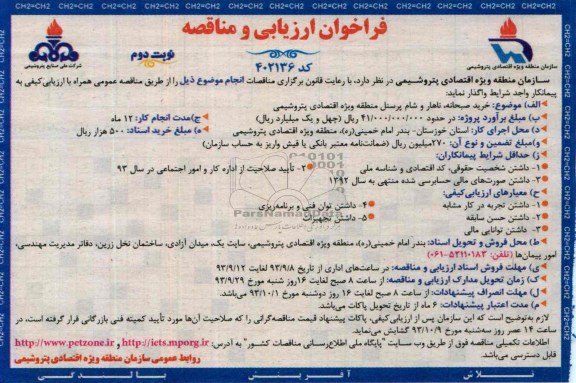 CH2=CH2 CH2=CH2 CH2=CH2 CH2=CH2 CH2=CH2 CH2=CH2 CH2=CH2 CH2=CH2 CH2=CH2
فراخوان ارزیابی و مناقصه
کد ۴۰۲۱۳۶
نوبت دوم
سازمان منطقه ویژه اقتصادی پتروشیمی
شرکت ملی صنایع پتروشیمی
سازمان منطقه ویژه اقتصادی پتروشیمی در نظر دارد، با رعایت قانون برگزاری مناقصات انجام موضوع ذیل را از طریق مناقصه عمومی همراه با ارزیابی کیفی به
پیمانکار واجد شرایط واگذار نماید:
الف) موضوع: خرید صبحانه، ناهار و شام پرسنل منطقه ویژه اقتصادی پتروشیمی
ب) مبلغ برآورد پروژه: در حدود ۴۱/۰۰۰/۰۰۰/۰۰۰ ریال (چهل و یک میلیارد ریال)
ج) مدت انجام کار: ۱۲ ماه
د) محل اجرای کار: استان خوزستان- بندر امام خمینی(ره)، منطقه ویژه اقتصادی پتروشیمی
ه) مبلغ خرید اسناد: ۵۰۰ هزار ریال
و) مبلغ تضمین و نوع آن: ۲۷۰ میلیون ریال (ضمانتنامه معتبر بانکی یا فیش واریز به حساب سازمان)
ز) حداقل شرایط پیمانکاران:
۱- داشتن شخصیت حقوقی، کد اقتصادی و شناسه ملی
۲- تأیید صلاحیت از اداره کار و امور اجتماعی در سال ۹۳
۳- داشتن صورت‌های مالی حسابرسی شده منتهی به سال ۱۳۹۲
ح) معیارهای ارزیابی کیفی:
۱- داشتن تجربه در کار مشابه
۴- داشتن توان فنی و برنامه‌ریزی
۲- داشتن حسن سابقه
۵- داشتن تجهیزات
۳- داشتن توانایی مالی
ParsNamadData
ط) محل فروش و تحویل اسناد: بندر امام خمینی(ره)، منطقه ویژه اقتصادی پتروشیمی، سایت یک، میدان آزادی، ساختمان نخل زرین، دفاتر مدیریت مهندسی،
امور پیمان‌ها (تلفن: ۵۲۱۱۰۱۸۳-۰۶۱)
ی) مهلت فروش اسناد ارزیابی و مناقصه: در ساعت‌های اداری از تاریخ ۹۳/۹/۸ لغایت ۹۳/۹/۱۲
ک) زمان تحویل مدارک ارزیابی و مناقصه: از ساعت ۸ صبح لغایت ۱۶ روز شنبه مورخ ۹۳/۹/۲۹
ل) مهلت انصراف پیشنهادات: از ساعت ۸ صبح لغایت ۱۶ روز دوشنبه مورخ ۹۳/۱۰/۱ می‌باشد.
م) مدت اعتبار پیشنهادات: ۶ ماه از تاریخ تحویل پاکات می‌باشد.
لازم به‌توضیح است که این سازمان پس از ارزیابی کیفی، پاکات پیشنهاد قیمت مناقصه‌گرانی را که صلاحیت آن‌ها مورد تأیید کمیته فنی بازرگانی قرار گرفته است، در
ساعت ۱۴ عصر روز سه‌شنبه مورخ ۹۳/۱۰/۹ گشایش می‌نماید.
اطلاعات تکمیلی مناقصه فوق از طریق وب سایت "پایگاه ملی اطلاع‌رسانی مناقصات کشور" به آدرس: http://iets.mporg.ir و http://www.petzone.ir
قابل دسترسی می‌باشد.
روابط عمومی سازمان منطقه ویژه اقتصادی پتروشیمی
تلاش آفرینش بالندگی